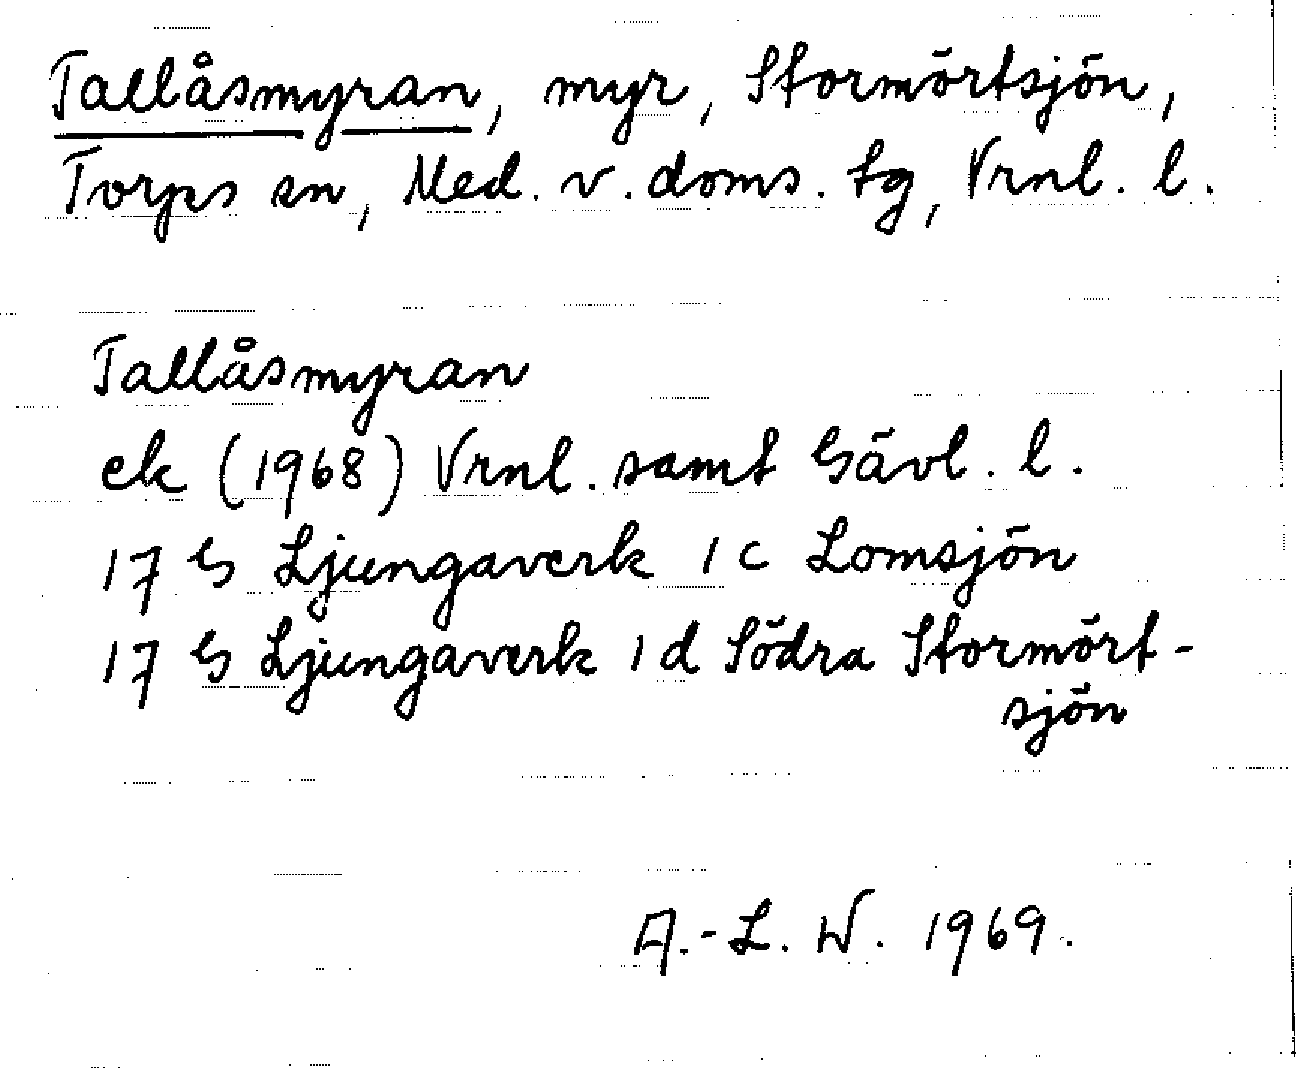 Tallåsmyran, myr, Stormörtsjön,
Torps sn, Med. v. doms. tg, Vrnl. l.
Tallåsmyran
ek (1968) Vrnl. samt Gävl. l.
17 G Ljungaverk 1 c Lomsjön
17 G Ljungaverk 1 d Södra Stormört-
sjön
A.-L. W. 1969.